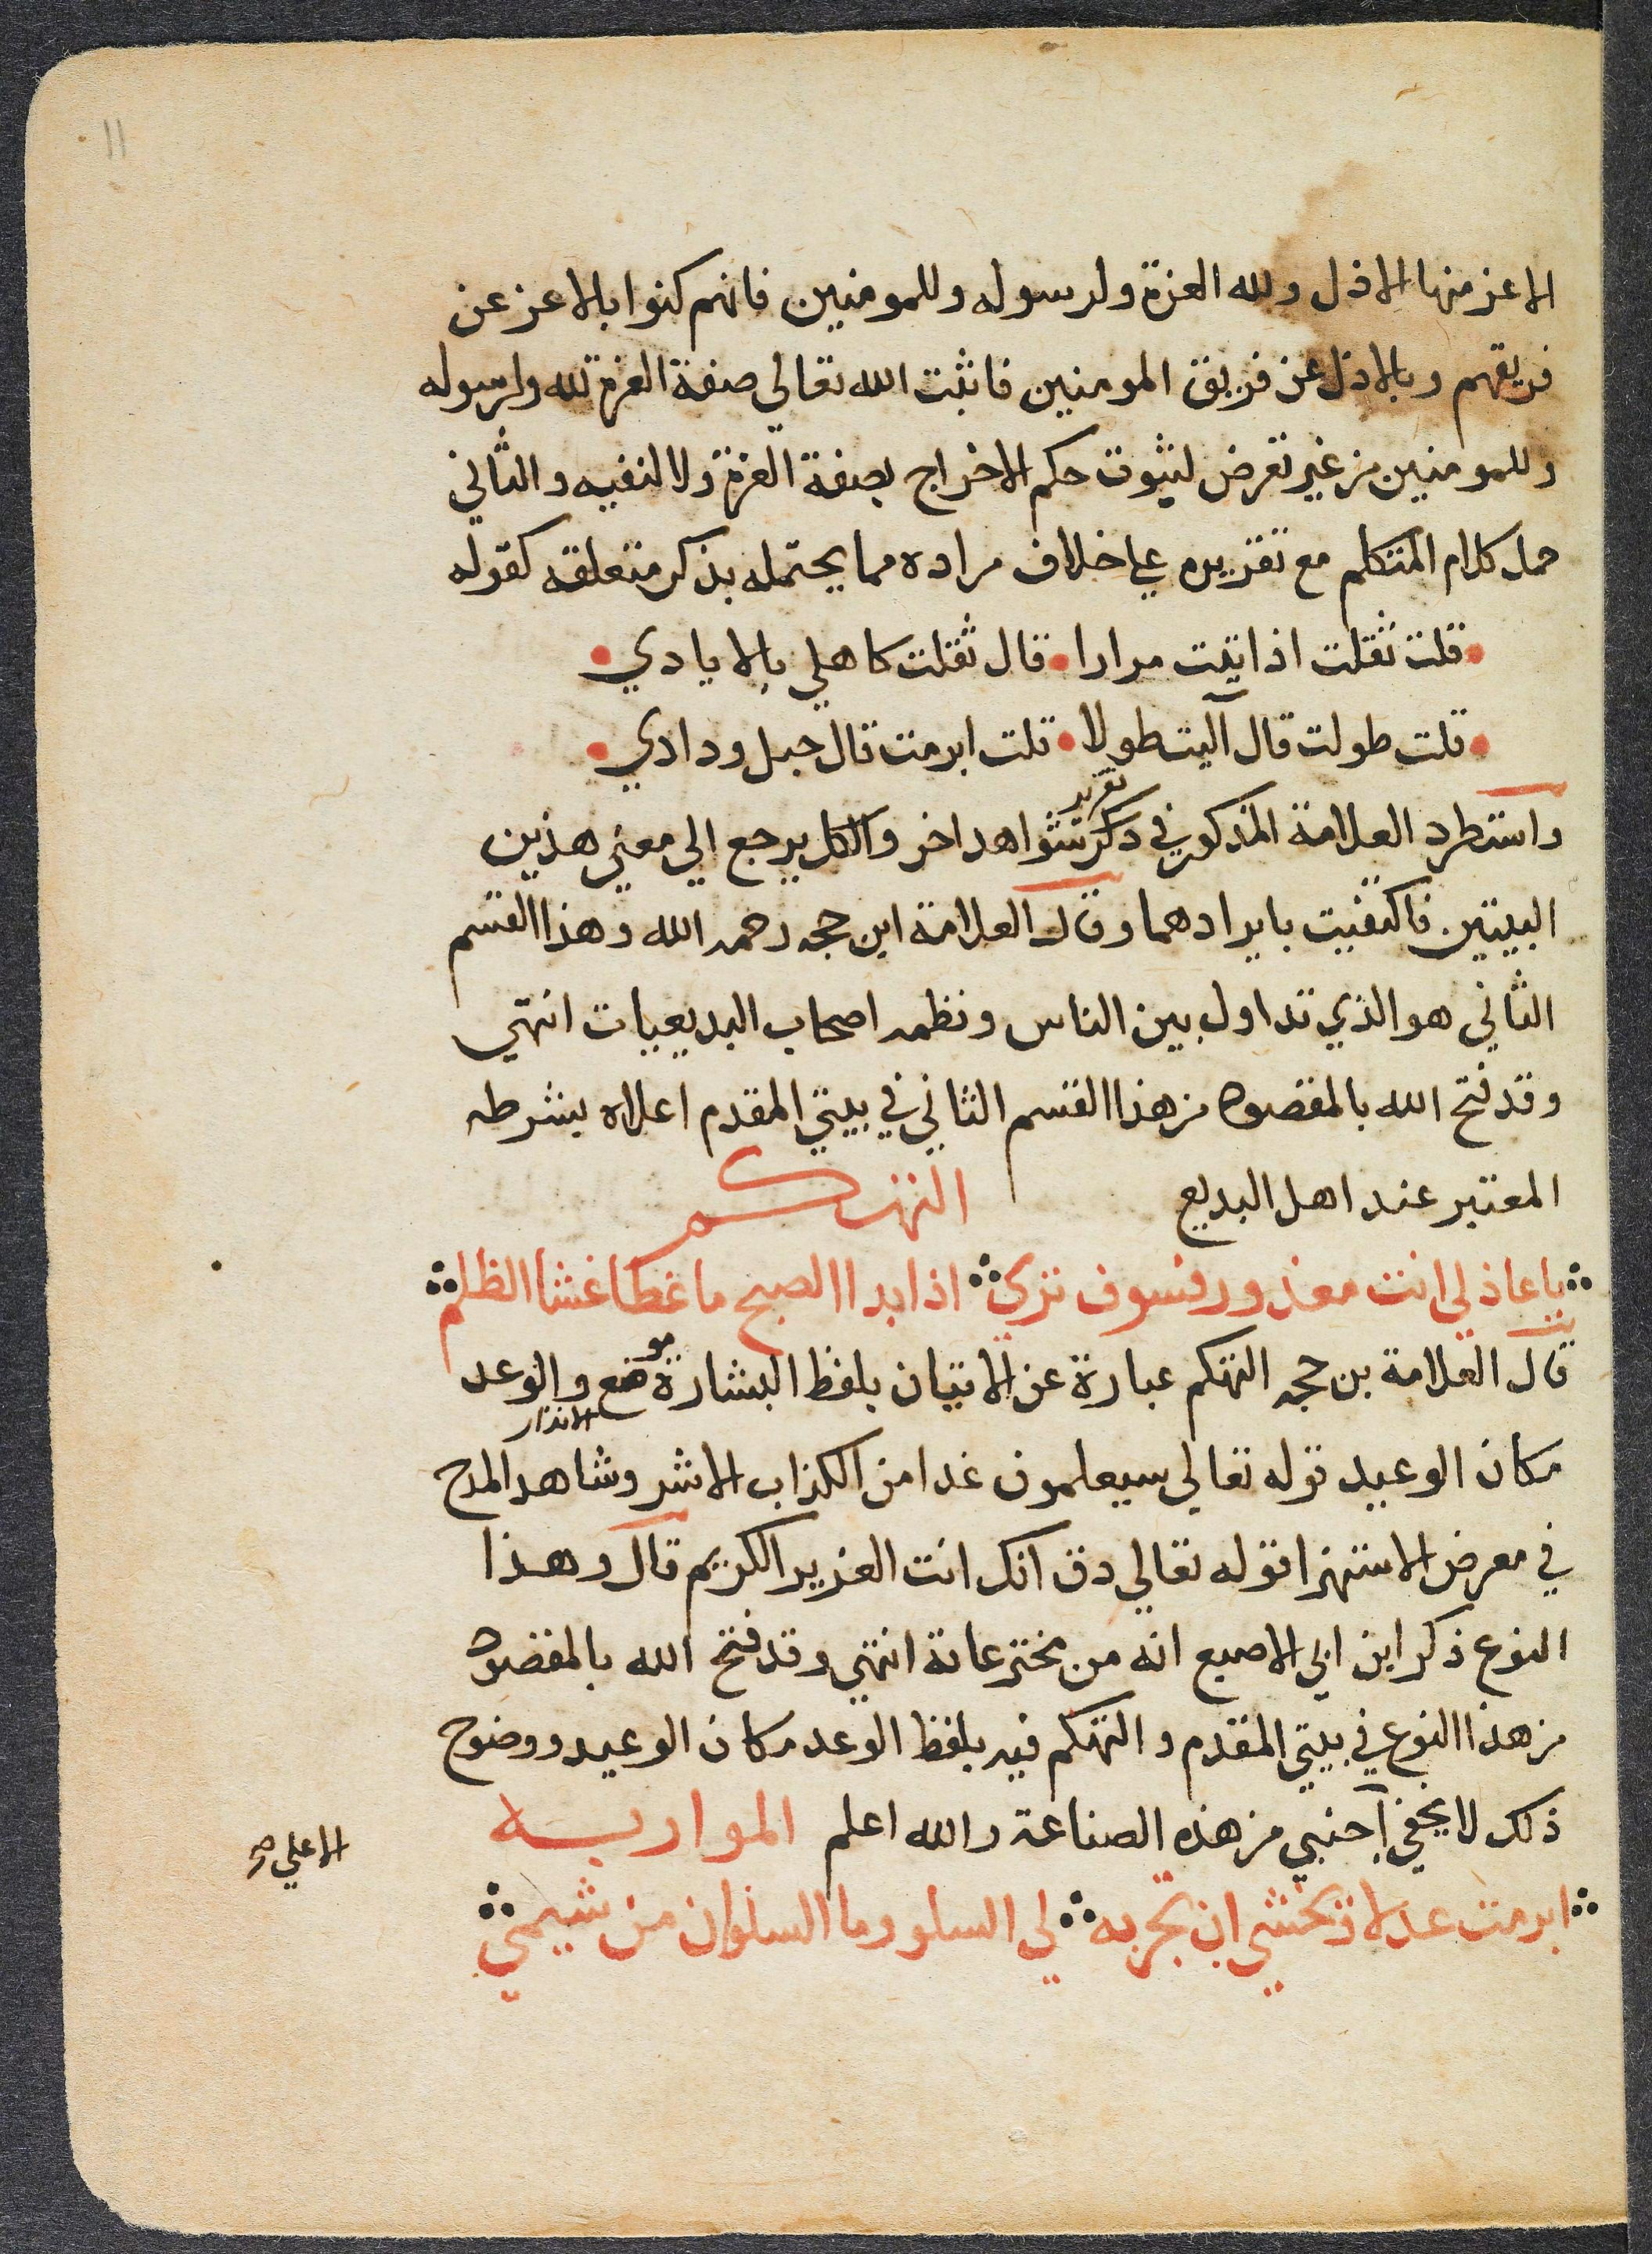 11
الاعز منها الاذل ولله العزة ولرسوله وللمومنين فانهم كنوا بالاعز عن
فريقهم وبالاذل عن فريق المومنين فاثبت الله تعالي صفة العزة لله ولرسوله
وللمومنين من غير تعرض لثبوت حكم الاخراج بصفة العزة ولا لنفيه والثاني
حمل كلام المتكلم مع تقريره علي خلاف مراده مما يحتمله بذكر متعلقه كقوله
قلت ثقلت اذ اتيت مرارا • قال ثقلت كاهلي بالايادي
قلت طولت قال آليت طولا • قلت ابرمت قال حبل ودادي
تقرير
واستطرد العلامة المذكور في ذكر شواهد اخر والكل يرجع الي معني هذين
البيتين فاكتفيت بايرادهما وقال العلامة ابن حجه رحمه الله وهذا القسم
الثاني هو الذي تداول بين الناس ونظمه اصحاب البديعيات انتهي
وقد فتح الله بالمقصود من هذا القسم الثاني في بيتي المقدم اعلاه بشرطه
المعتبر عند اهل البديع التهكم
يا عاذلي انت معذور فسوف تري ∴ اذا بدا الصبح ما غطا غشا الظلم
قال العلامة بن حجه التهكم عبارة عن الاتيان بلفظ البشارة موضع والوعد
الانذار
مكان الوعيد قوله تعالي سيعلمون غدا من الكذاب الاشر وشاهد المدح
في معرض الاستهزا قوله تعالي دق انك انت العزيز الكريم قال وهذا
النوع ذكر ابن ابي الاصبع انه من مخترعاته انتهي وقد فتح الله بالمقصود
من هذا النوع في بيتي المقدم والتهكم فيه بلفظ الوعد مكان الوعيد ووضوح
ذلك لا يخفي اجنبي من هذه الصناعة والله اعلم المواربه
الا علي صح
ابرمت عذلا تخشي ان تجر به ∴ لي السلو وما السلوان من شيمي